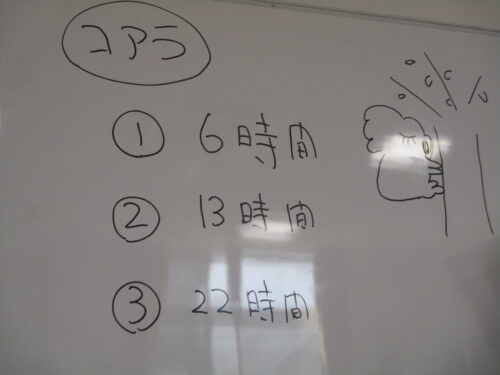 コアラ
① 6時間
② 13時間
③ 22時間